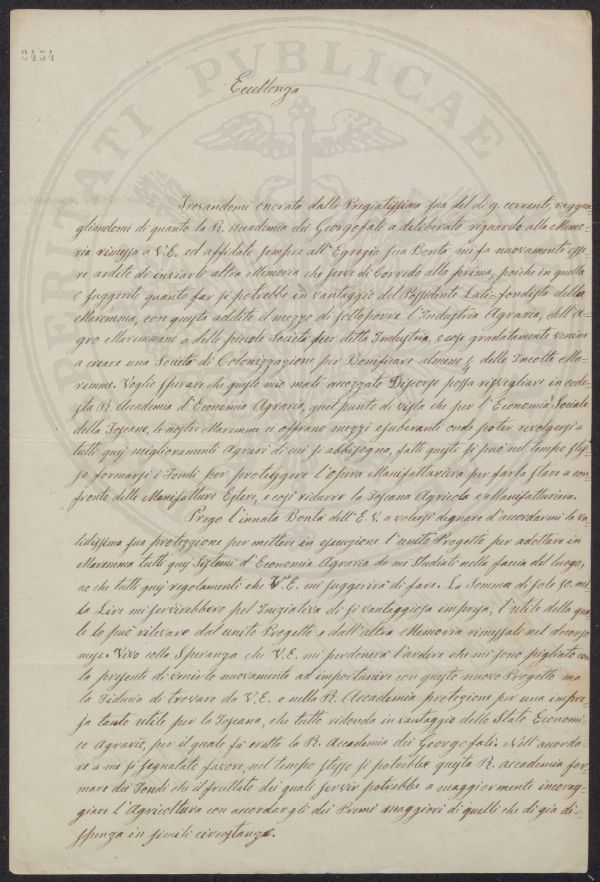 2454
PROSPERITATI PUBLICAE
Eccellenza
Trovandomi onorata dalla Pregiatissima sua del di 9. corrente, raggua-
gliandomi di quanto la R. Accademia dei Georgofali a deliberato riguardo alla Memo-
ria rimessa a V.E. ed affidato sempre all'Egregia sua Bontà mi fa nuovamente esse-
re ardito di inviarle altra Memoria che serve di corredo alla prima, poiche in quella
o suggerito quanto far si potrebbe in vantaggio del Possidente Lati-fondista della
Maremma, con questa addito il mezzo di sottoporre l'Industria Agraria, dell'a-
gro Maremmano a delle piccole Società per detta Industria, e così gradatamente venire
a creare una Società di Colonizzazione per Bonificare almeno ¼ delle Incolte Ma-
remme. Voglio sperare che questo mio mal accozzato Discorso possa risvegliare in code-
sta R. Accademia d'Economia Agraria, quel punto di vista che per l'Economia Sociale
della Toscana, le nostre Maremme ci offrano mezzi esuberanti onde poter rivolgersi a
tutti quei miglioramenti Agrari di cui si abbisogna, fatti questi si può nel tempo stes-
so formarsi i Fondi per proteggere l'Opera Manifatturiera per farla stare a con-
fronto delle Manifatture Estere, e così ridurre la Toscana Agricola e Manifatturiera.
Prego l'innata Bontà dell'E.V. a volersi degnare d'accordarmi la va-
lidissima sua protezzione per mettere in esecuzione l'unito Progetto per adottare in
Maremma tutti quei Sistemi d'Economia Agraria da me Studiati nella faccia del luogo,
no che tutti quei regolamenti che V.E. mi suggerirà di fare. La Somma di sole 50. mi-
la Lire mi servirebbero pel Iniziativa di sì vantaggiosa impresa, l'utile della qua-
le lo può rilevare dal unito Progetto e dall'altra Memoria rimessali nel decorso
mese. Vivo colla Speranza che V.E. mi perdonerà l'ardire che mi sono pigliato con
la presente di venirlo nuovamente ad importunire con questo nuovo Progetto ma
la Fiducia di trovare da V.E. e nella R. Accademia protezione per una impre-
sa tanto utile per la Toscana, che tutto ridonda in vantaggio dello Stato Economi-
co Agrario, per il quale fù eretta la R. Accademia dei Georgofali. Nell'accorda-
re a me sì segnalato favore, nel tempo stesso si potrebbe questa R. accademia for-
mare dei Fondi che il fruttato dei quali servir potrebbe a maggiormente incorag-
giare l'Agricoltura con accordar gli dei Premi maggiori di quelli che di già di-
spenza in simili circostanze.